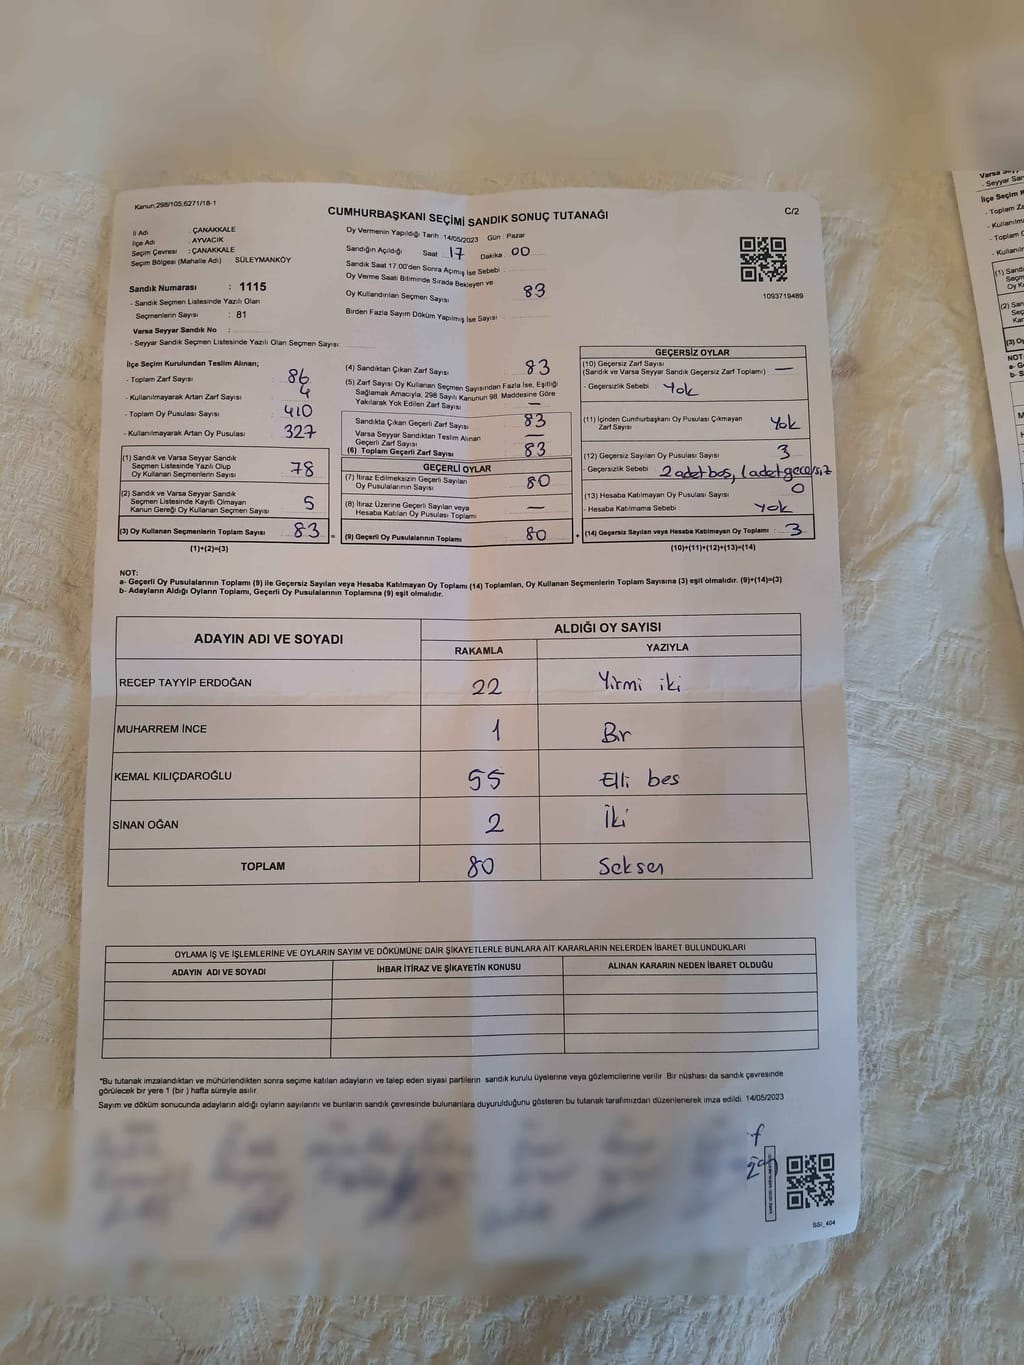 Kanun;298/105;6271/18-1
CUMHURBAŞKANI SEÇİMİ SANDIK SONUÇ TUTANAĞI
C/2
İl Adı : ÇANAKKALE
İlçe Adı : AYVACIK
Seçim Çevresi : ÇANAKKALE
Seçim Bölgesi (Mahalle Adı) : SÜLEYMANKÖY
Sandık Numarası : 1115
- Sandık Seçmen Listesinde Yazılı Olan
Seçmenlerin Sayısı : 81
Varsa Seyyar Sandık No :
- Seyyar Sandık Seçmen Listesinde Yazılı Olan Seçmen Sayısı:
Oy Vermenin Yapıldığı Tarih :14/05/2023 Gün : Pazar
Sandığın Açıldığı Saat 17 Dakika 00
Sandık Saat 17:00'den Sonra Açımış İse Sebebi :
Oy Verme Saati Bitiminde Sırada Bekleyen ve
Oy Kullandırılan Seçmen Sayısı : 83
Birden Fazla Sayım Döküm Yapılmış İse Sayısı :
1093719489
İlçe Seçim Kurulundan Teslim Alınan;
- Toplam Zarf Sayısı : 86
- Kullanılmayarak Artan Zarf Sayısı : 4
- Toplam Oy Pusulası Sayısı : 410
- Kullanılmayarak Artan Oy Pusulası : 327
(1) Sandık ve Varsa Seyyar Sandık
Seçmen Listesinde Yazılı Olup
Oy Kullanan Seçmenlerin Sayısı : 78
(2) Sandık ve Varsa Seyyar Sandık
Seçmen Listesinde Kayıtlı Olmayan
Kanun Gereği Oy Kullanan Seçmen Sayısı : 5
(3) Oy Kullanan Seçmenlerin Toplam Sayısı : 83
(1)+(2)=(3)
(4) Sandıktan Çıkan Zarf Sayısı : 83
(5) Zarf Sayısı Oy Kullanan Seçmen Sayısından Fazla İse, Eşitliği
Sağlamak Amacıyla, 298 Sayılı Kanunun 98. Maddesine Göre
Yakılarak Yok Edilen Zarf Sayısı : —
Sandıkta Çıkan Geçerli Zarf Sayısı : 83
Varsa Seyyar Sandıktan Teslim Alınan
Geçerli Zarf Sayısı : —
(6) Toplam Geçerli Zarf Sayısı : 83
GEÇERLİ OYLAR
(7) İtiraz Edilmeksizin Geçerli Sayılan
Oy Pusulalarının Sayısı : 80
(8) İtiraz Üzerine Geçerli Sayılan veya
Hesaba Katılan Oy Pusulaları Toplamı : —
= (9) Geçerli Oy Pusulalarının Toplamı : 80
GEÇERSİZ OYLAR
(10) Geçersiz Zarf Sayısı
(Sandık ve Varsa Seyyar Sandık Geçersiz Zarf Toplamı) : —
- Geçersizlik Sebebi : Yok
(11) İçinden Cumhurbaşkanı Oy Pusulası Çıkmayan
Zarf Sayısı : Yok
(12) Geçersiz Sayılan Oy Pusulası Sayısı : 3
- Geçersizlik Sebebi : 2 adet boş, 1 adet geçersiz
(13) Hesaba Katılmayan Oy Pusulası Sayısı : 0
- Hesaba Katılmama Sebebi : Yok
+ (14) Geçersiz Sayılan veya Hesaba Katılmayan Oy Toplamı : 3
(10)+(11)+(12)+(13)=(14)
NOT:
a- Geçerli Oy Pusulalarının Toplamı (9) ile Geçersiz Sayılan veya Hesaba Katılmayan Oy Toplamı (14) Toplamları, Oy Kullanan Seçmenlerin Toplam Sayısına (3) eşit olmalıdır. (9)+(14)=(3)
b- Adayların Aldığı Oyların Toplamı, Geçerli Oy Pusulalarının Toplamına (9) eşit olmalıdır.
ADAYIN ADI VE SOYADI
ALDIĞI OY SAYISI
RAKAMLA YAZIYLA
RECEP TAYYİP ERDOĞAN 22 Yirmi iki
MUHARREM İNCE 1 Bir
KEMAL KILIÇDAROĞLU 55 Elli bes
SİNAN OĞAN 2 İki
TOPLAM 80 Seksen
OYLAMA İŞ VE İŞLEMLERİNE VE OYLARIN SAYIM VE DÖKÜMÜNE DAİR ŞİKAYETLERLE BUNLARA AİT KARARLARIN NELERDEN İBARET BULUNDUKLARI
ADAYIN ADI VE SOYADI İHBAR İTİRAZ VE ŞİKAYETİN KONUSU ALINAN KARARIN NEDEN İBARET OLDUĞU
*Bu tutanak imzalandıktan ve mühürlendikten sonra seçime katılan adayların ve talep eden siyasi partilerin sandık kurulu üyelerine veya gözlemcilerine verilir. Bir nüshası da sandık çevresinde
görülecek bir yere 1 (bir) hafta süreyle asılır.
Sayım ve döküm sonucunda adayların aldığı oyların sayılarını ve bunların sandık çevresinde bulunanlara duyurulduğunu gösteren bu tutanak tarafımızdan düzenlenerek imza edildi. 14/05/2023
SSI_404